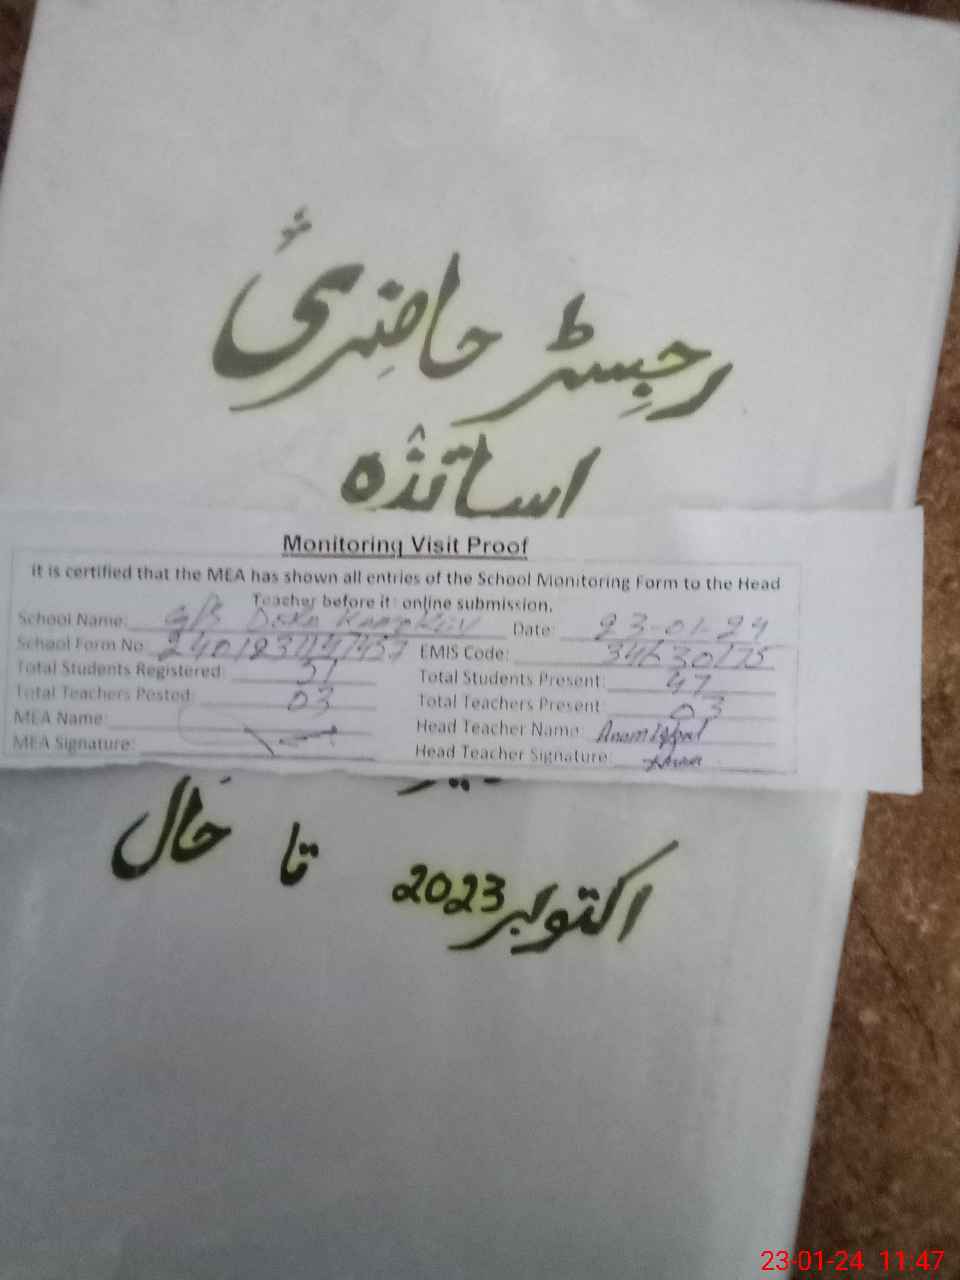 رجسٹر حاضری
اساتذہ
Monitoring Visit Proof
it is certified that the MEA has shown all entries of the School Monitoring Form to the Head
Teacher before it online submission.
School Name: Date: 23-01-24
School Form No: EMIS Code: 34630175
Total Students Registered: 51 Total Students Present: 47
Total Teachers Posted: 03 Total Teachers Present: 03
MEA Name: Head Teacher Name: Anam Iqbal
MEA Signature: Head Teacher Signature: Anam
اکتوبر 2023 تا حال
23-01-24 11:47